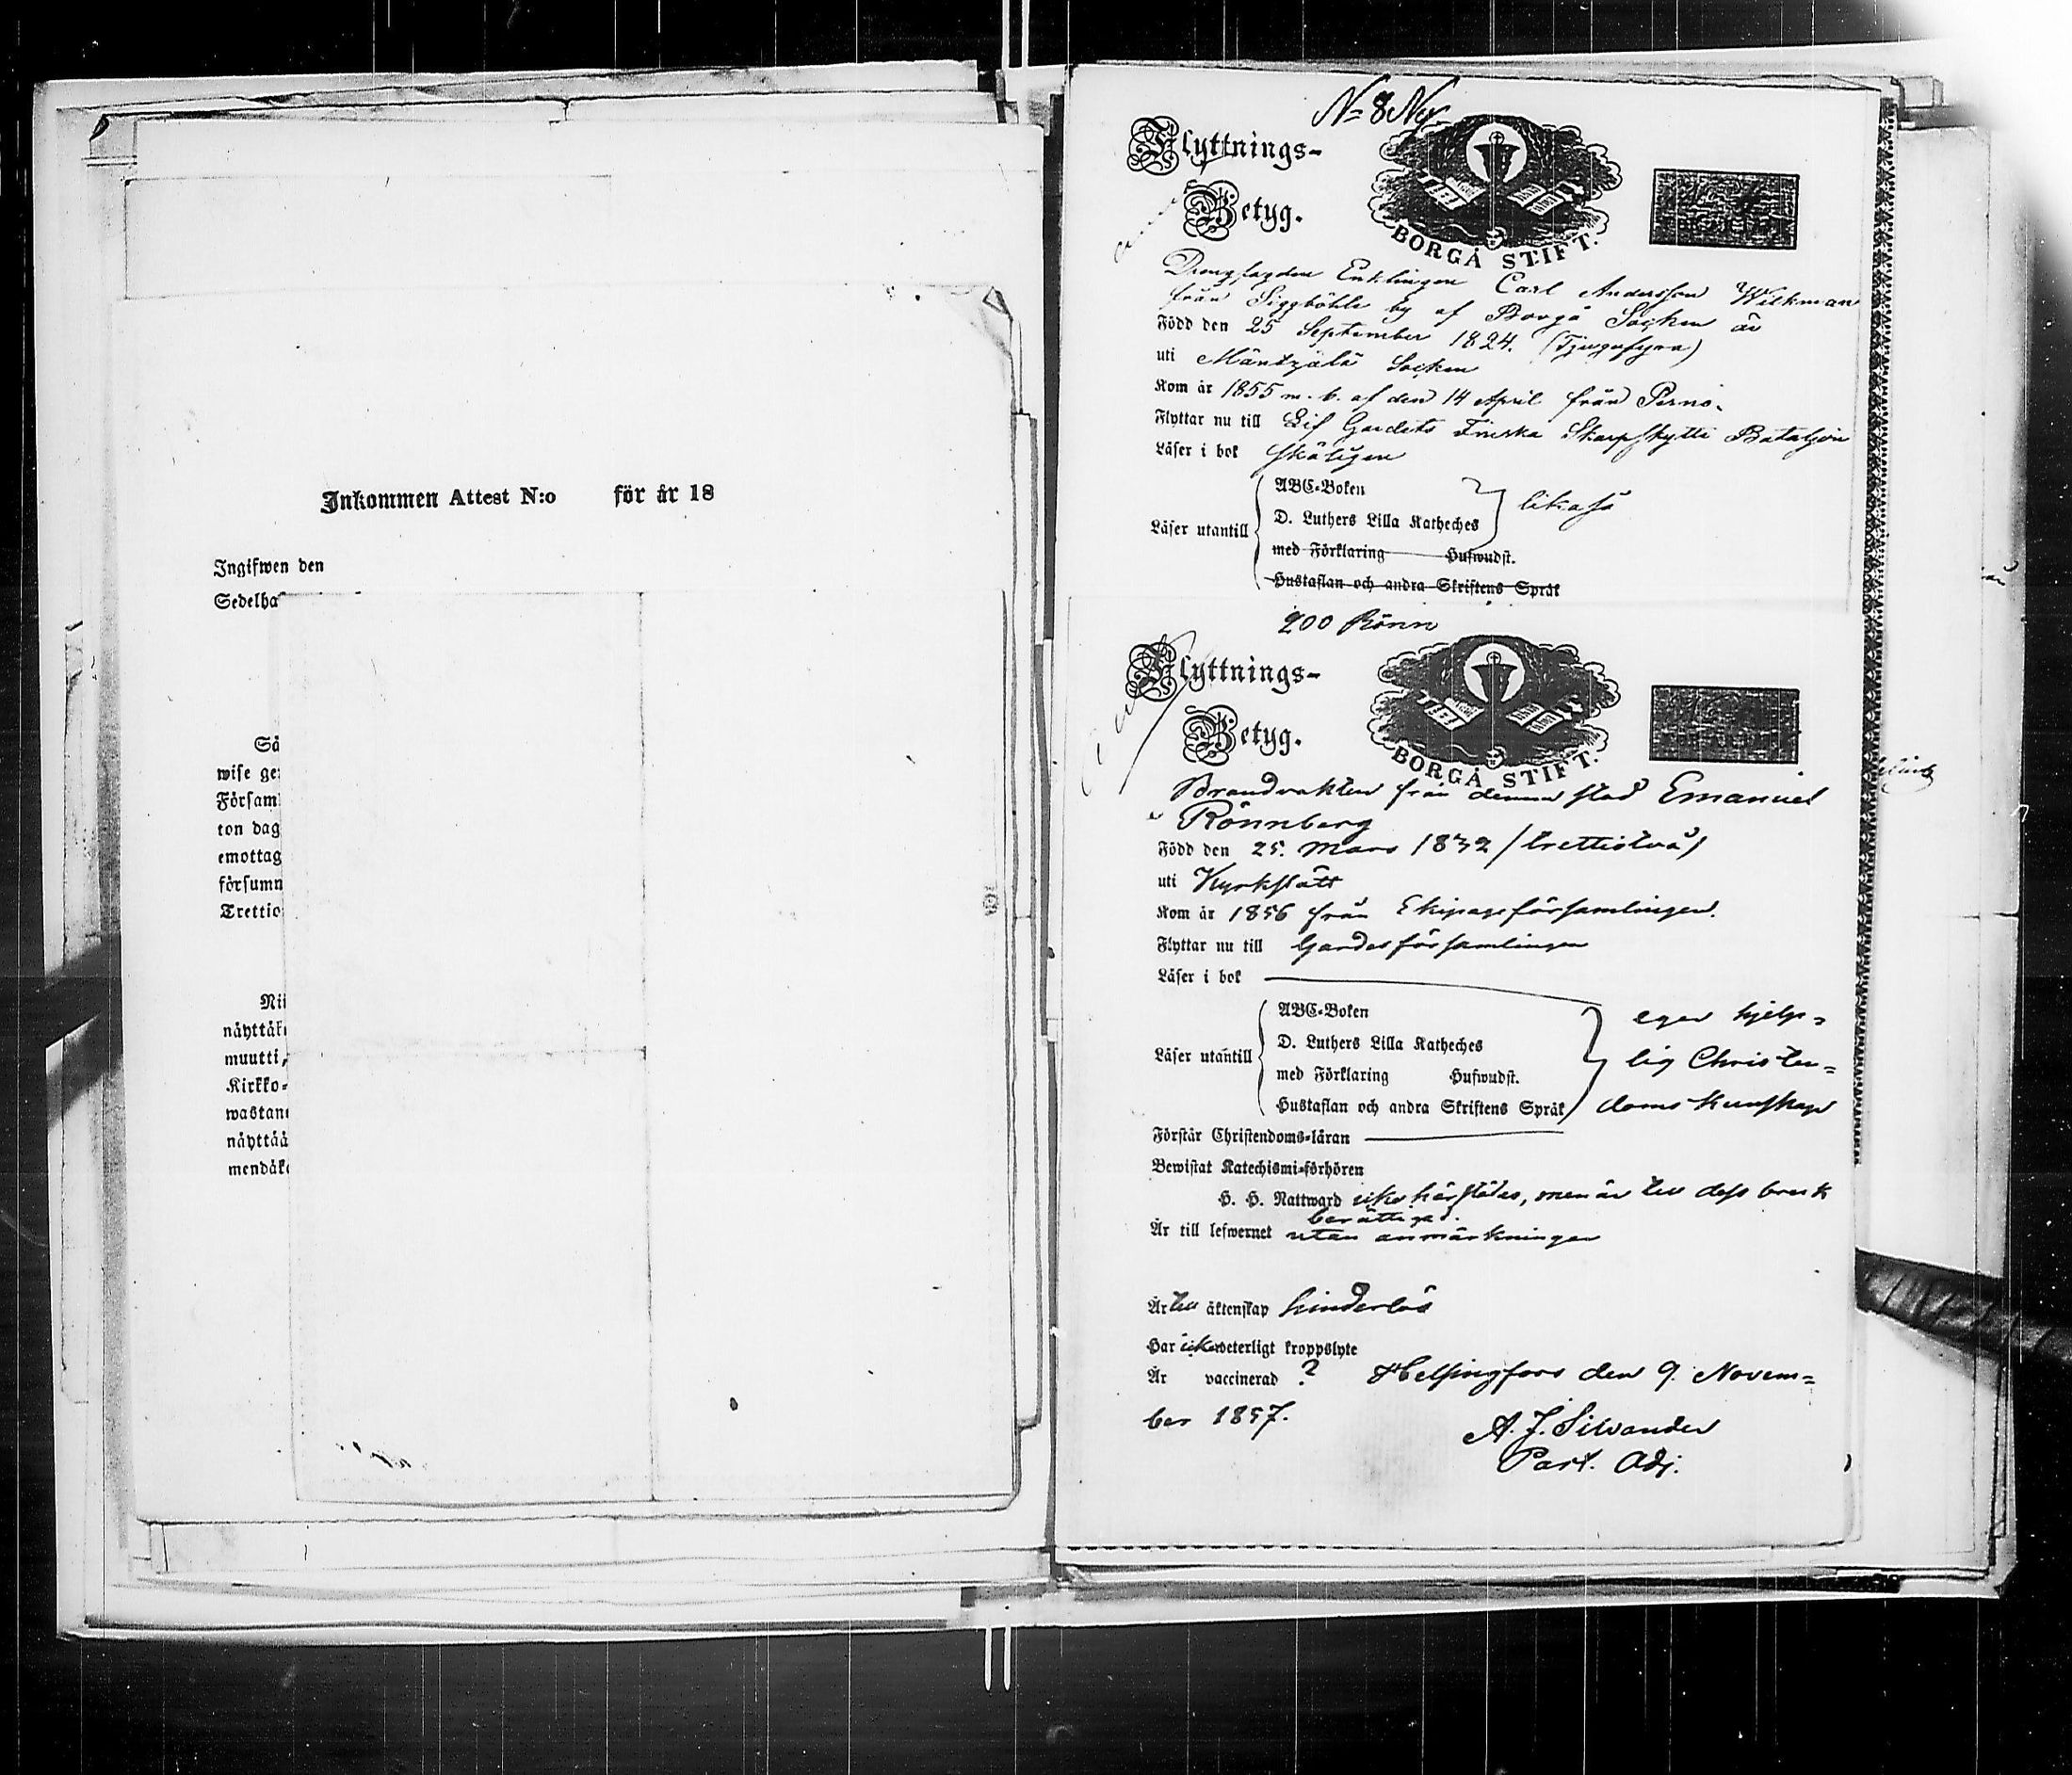 Inkommen Attest N:o för år 18
Ingifwen den
Sedelha
Så
wise ge
Försam
ton dag
emottag
försumm
Trettio
Nii
näyttäk
muutti,
Kirkko-
wastan
näyttää
mendäk
N:o 8 Ny
Flyttnings-
Betyg.
BORGÅ STIFT.
Drengsagden Enklingen Carl Andersson Wilkman
från Siggböhle by af Borgå Socken är
Född den 25 September 1824. (Tjugufyra)
uti Mäntzälä Socken
Kom år 1855 m. b. af den 14 April från Perno.
Flyttar nu till Lif Gardets Finska Skarpskytte Bataljon
Läser i bok skäligen
ABC-Boken
D. Luthers Lilla Katheches
likaså
Läser utantill
med Förklaring Hufwudst.
Hustaflan och andra Skriftens Språk
200 Rönn
Flyttnings-
Betyg.
BORGÅ STIFT.
Brandvakten från denna stad Emanuel
Rönnberg
Född den 25. Mars 1832 /trettiotvå/
uti Kyrkslätt
Kom år 1856 från Ekipageförsamlingen.
Flyttar nu till Gardesförsamlingen
Läser i bok
ABC-Boken
D. Luthers Lilla Katheches
Läser utantill
med Förklaring Hufwudst.
Hustaflan och andra Skriftens Språk
eger hjelp-
lig Christen-
doms kunskap
Förstår Christendoms-läran
Bewistat Katechismi-förhören
H. H. Nattward icke härstädes, men är till dess bruk
berättigad.
Är till lefwernet utan anmärkningar
Är till äktenskap hinderlös
Har icke weterligt kroppslyte
Är vaccinerad ? Helsingfors den 9. Novem-
ber 1857.
A. J. Silvander
Past. Adj.